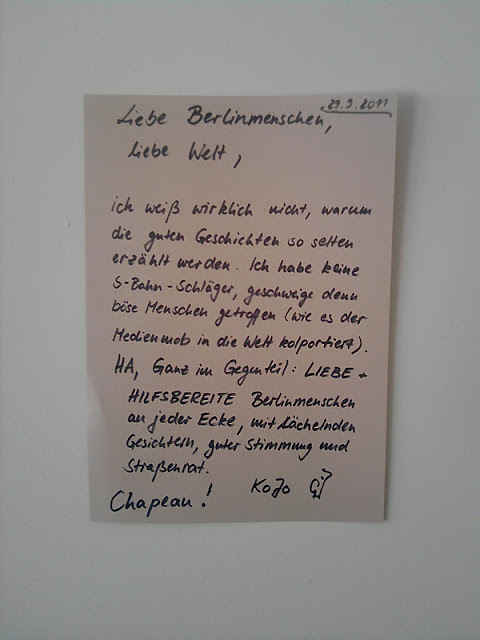 29.9.2011
Liebe Berlinmenschen,
Liebe Welt,
ich weiß wirklich nicht, warum
die guten Geschichten so selten
erzählt werden. Ich habe keine
S-Bahn-Schläger, geschweige denn
böse Menschen getroffen (wie es der
Medienmob in die Welt kolportiert).
HA, Ganz im Gegenteil: LIEBE +
HILFSBEREITE Berlinmenschen
an jeder Ecke, mit Lächelnden
Gesichtern, guter Stimmung und
Straßenrat.
KoJo
Chapeau!